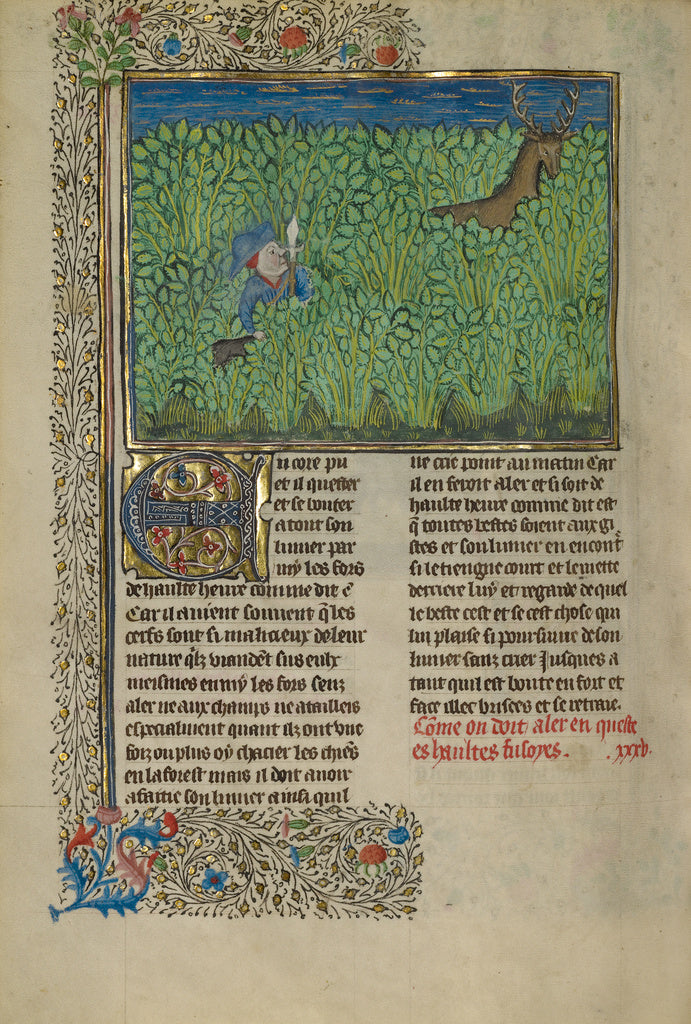 Encore pu
et il quester
et se bouter
a tout son
limier par
my les fors
de haulte heure comme dit ē
Car il auient souuent q̄ les
cerfs sont si malicieux de leur
nature qlz viandēt sus eulx
meismes en my les fors senz
aler ne aux champs ne a tailleis
especialment quant ilz ont vne
foiz ou plus oy chacier les chiēs
en la forest mais il doit auoir
afaitie son limier ainsi quil
ne crie point au matin Car
il en feroit aler et si soit de
haulte heure comme dit est
q̄ toutes bestes soient aux gi
stes et son limier en encont̄
si le tiengne court et le mette
derriere luy et regarde de quel
le beste cest et se cest chose qui
lui plaise si poursuiue de son
limier sanz crier Jusques a
tant quil est boute en fort et
face illec brisees et se retraie.
Cōme on doit aler en queste
es haultes fustoyes. .xxxv.